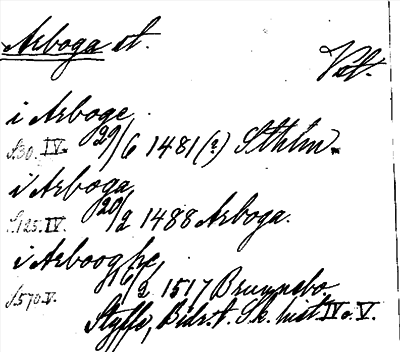 Arboga st.
Vst.
i Arboge
S.30. IV. 29/6 1481 (?) Sthlm.
i Arboga
S.125. IV. 20/2 1488 Arboga.
i Arbooghe
S.570. V. 16/2 1517 Brunnsbo.
Styffe, Bidr. t. Sk. hist IV o. V.